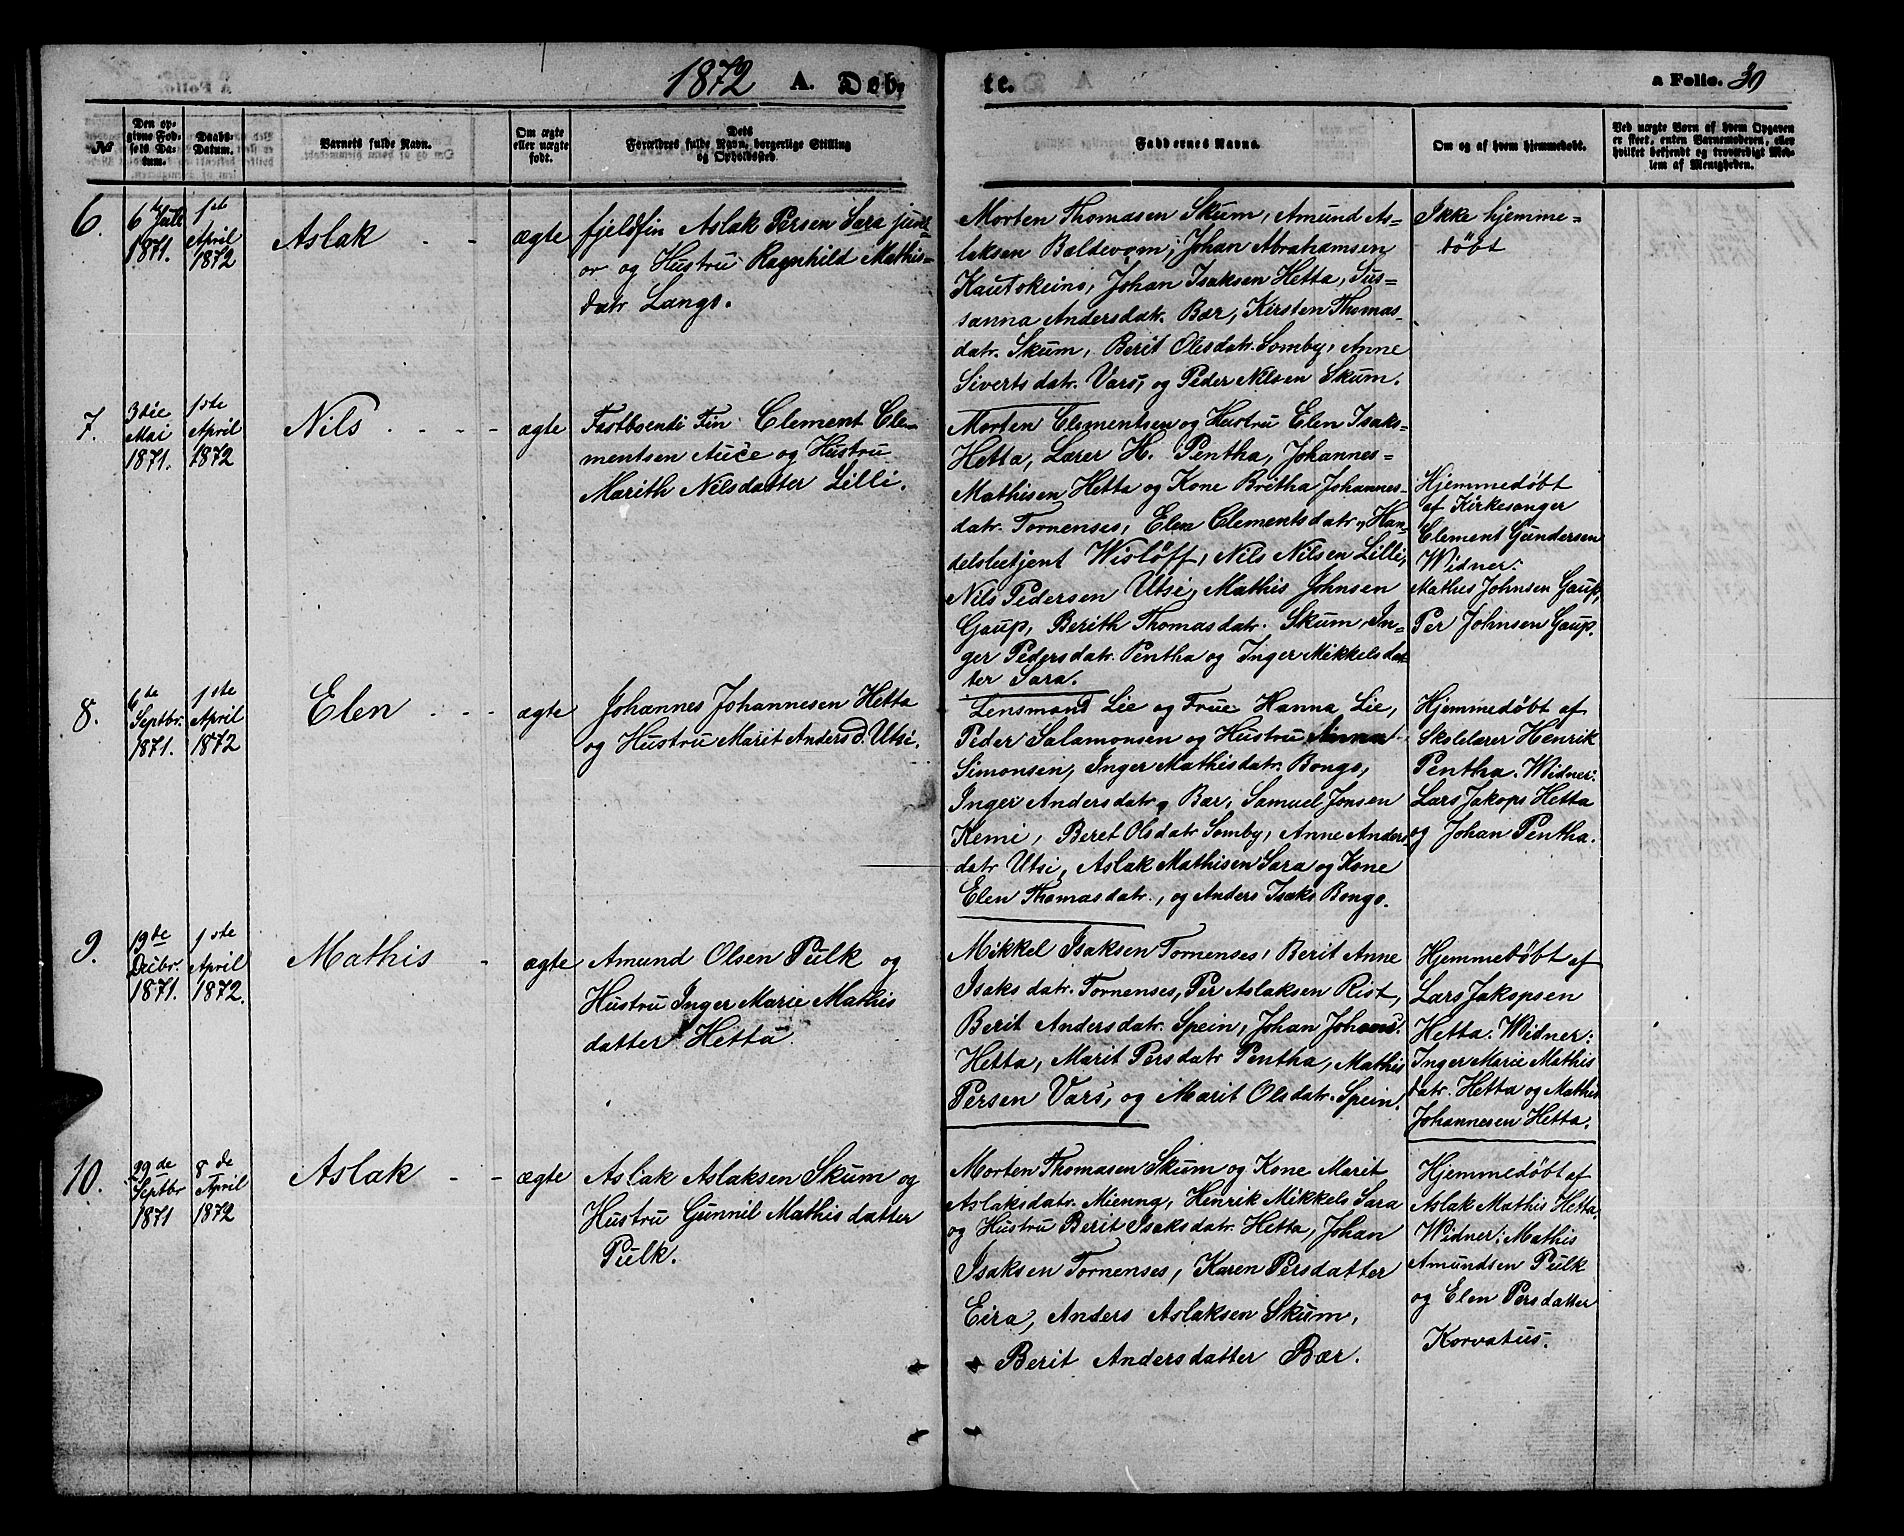 1872 A. Døb,
te. a Folio. 30
No
Den op-
givne Fød-
sels Da-
tum.
Daabs-
Datum.
Barnets fulde Navn.
Om ægte
eller uægte
født.
Dets
Forældres fulde Navn, borgerlige Stilling
og Opholdssted.
Faddernes Navne.
Om og af hvem hjemmedøbt.
Ved uægte Børn af hvem Opgaven
er skeet, enten Barnemoderen, eller
hvilket bekjendt og troværdigt Med-
lem af Menigheden.
6.
6te Juli
1871.
1ste
April
1872
Aslak
ægte
fjeldfin Aslak Persen Sara juni-
or og Hustru Ragnhild Mathis-
datr Lango.
Morten Thomasen Skum, Amund As-
laksen Baldevom, Johan Abrahamsen
Kautokeino, Johan Isaksen Hetta, Sus-
sanna Andersdatr. Bær, Kirsten Thomas-
datr. Skum, Berit Olsdatr. Somby, Anne
Sivertsdatr. Vars, og Peder Nilsen Skum.
Ikke hjemme-
døbt
7.
3die
Mai
1871.
1ste
April
1872
Nils
ægte
Fastboende Fin Clement Cle-
mentsen Auce og Hustru
Marith Nilsdatter Lilli.
Morten Clementsen og Hustru Elen Isaks-
Hetta, Lærer H. Pentha, Johannes-
Mathisen Hetta og Kone Britha Johannes-
datr. Tornenses, Elen Clementsdatr, Han-
delsbetjent Wisløff, Nils Nilsen Lilli,
Nils Pedersen Utsi, Mathis Johnsen
Gaup, Berith Thomasdatr. Skum, In-
ger Pedersdatr. Pentha og Inger Mikkelsdat-
ter Sara.
Hjemmedøbt
af Kirkesanger
Clement Gundersen
Widner:
Mathis Johnsen Gaup,
Per Johnsen Gaup.
8.
6te
Septbr.
1871.
1ste
April
1872
Elen
ægte
Johannes Johannesen Hetta
og Hustru Marit Anders D. Utsi.
Lensmand Lie og Frue Hanna Lie,
Peder Salamonsen og Hustru Anna
Simonsen, Inger Mathisdatr. Bongo,
Inger Andersdatr. Bær, Samuel Jonsen
Kemi, Beret Olsdatr Somby, Anne Anders-
datr Utsi, Aslak Mathisen Sara og Kone
Elen Thomasdatr., og Anders Isaks Bongo.
Hjemmedøbt af
Skolelærer Henrik
Pentha. Widner:
Lars Jakops Hetta
og Johan Pentha.
9.
19de
Decbr.
1871.
1ste
April
1872.
Mathis
ægte
Amund Olsen Pulk og
Hustru Inger Marie Mathis
datter Hetta
Mikkel Isaksen Tornenses, Berit Anne
Isaksdatr. Tornenses, Per Aslaksen Rist,
Berit Andersdatr. Spein, Johan Johans.
Hetta, Marit Persdatr Pentha, Mathis
Persen Vars, og Marit Olsdatr. Spein.
Hjemmedøbt af
Lars Jakopsen
Hetta. Widner:
Inger Marie Mathis
datr. Hetta og Mathis
Johannesen Hetta.
10.
29de
Septbr
1871
8de
April
1872
Aslak
ægte
Aslak Aslaksen Skum og
Hustru Gunnil Mathisdatter
Pulk.
Morten Thomasen Skum og Kone Marit
Aslaksdatr. Mienna, Henrik Mikkels Sara
og Hustru Berit Isaksdatr. Hetta, Johan
Isaksen Tornenses, Karen Persdatter
Eira, Anders Aslaksen Skum,
Berit Andersdatter Bær.
Hjemmedøbt af
Aslak Mathis Hetta.
Widner: Mathis
Amundsen Pulk
og Elen Persdatter
Korvatus.